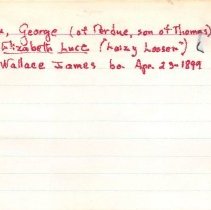 , George (of Perdue, son of Thomas)
Elizabeth Luce ("Loizy Looson")
Wallace James bo. Apr. 23-1899